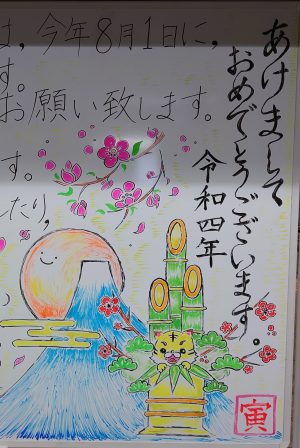 は，今年8月1日に，
す。
お願い致します。
す。
したり，
あけまして
おめでとうございます。
令和四年
寅